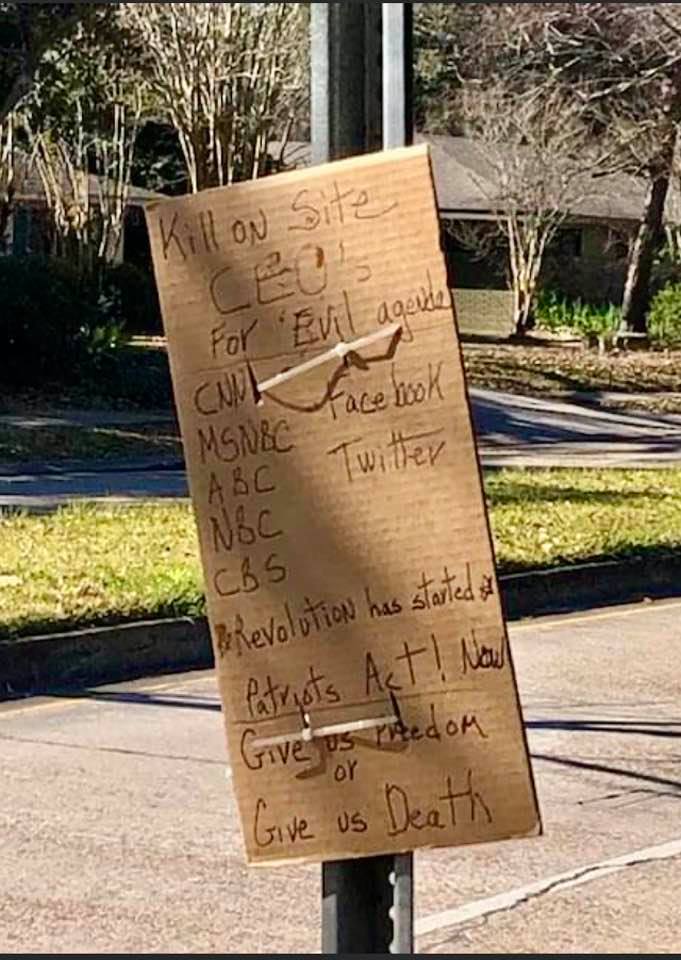 Kill on Site
CEO's
For Evil agenda
CNN Facebook
MSNBC Twitter
ABC
NBC
CBS
Revolution has started
Patriots Act! Now
Give us Freedom
or
Give us Death